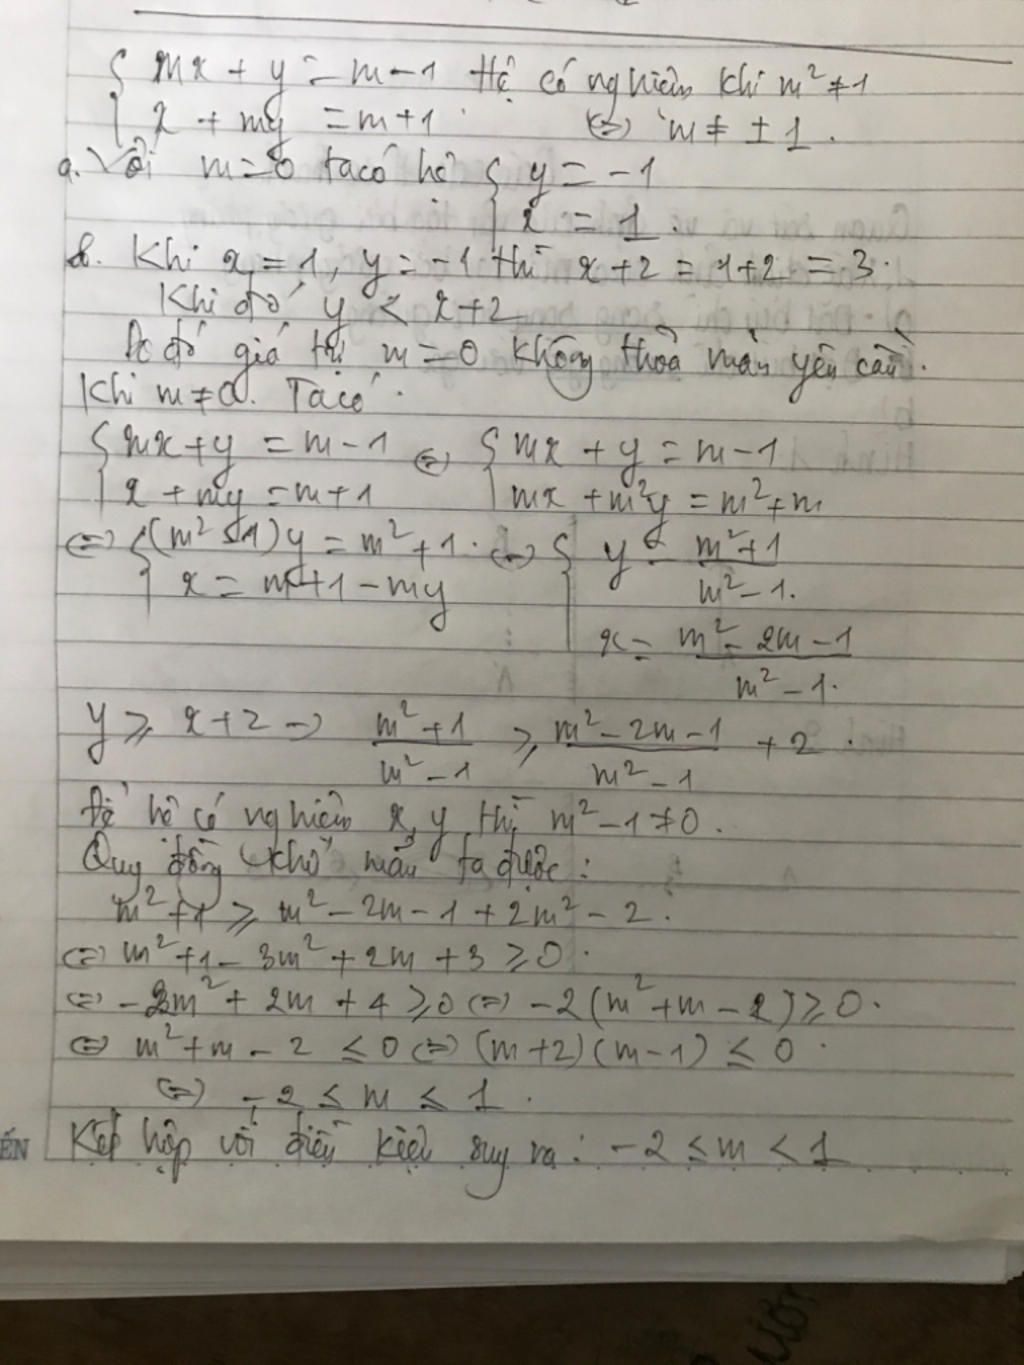 { mx + y = m - 1 Hệ có nghiệm khi m² ≠ 1
x + my = m+1 <=> m ≠ ± 1.
a. Với m=0 ta có hệ { y = -1
x = 1.
b. Khi x = 1, y = -1 thì x+2 = 1+2 = 3.
Khi đó y < x+2
Do đó giá trị m = 0 không thoả mãn yêu cầu.
Khi m ≠ 0. Ta có
{ mx+y = m-1 <=> { mx + y = m-1
x + my = m+1 mx + m²y = m²+m
<=> { (m² - 1)y = m²+1. <=> { y = m²+1 / m²-1.
x = m+1-my
x = m² - 2m - 1 / m² - 1.
y ≥ x+2 => m²+1 / m²-1 ≥ m²-2m-1 / m²-1 + 2.
Để hệ có nghiệm x, y thì m²-1 ≠ 0.
Quy đồng khử mẫu ta được:
m²+1 ≥ m² - 2m - 1 + 2m² - 2.
<=> m²+1 - 3m² + 2m + 3 ≥ 0.
<=> -2m² + 2m + 4 ≥ 0 <=> -2(m²+m-2) ≥ 0.
<=> m²+m - 2 ≤ 0 <=> (m+2)(m-1) ≤ 0.
<=> -2 ≤ m ≤ 1.
ẾN Kết hợp với điều kiện suy ra: -2 ≤ m < 1